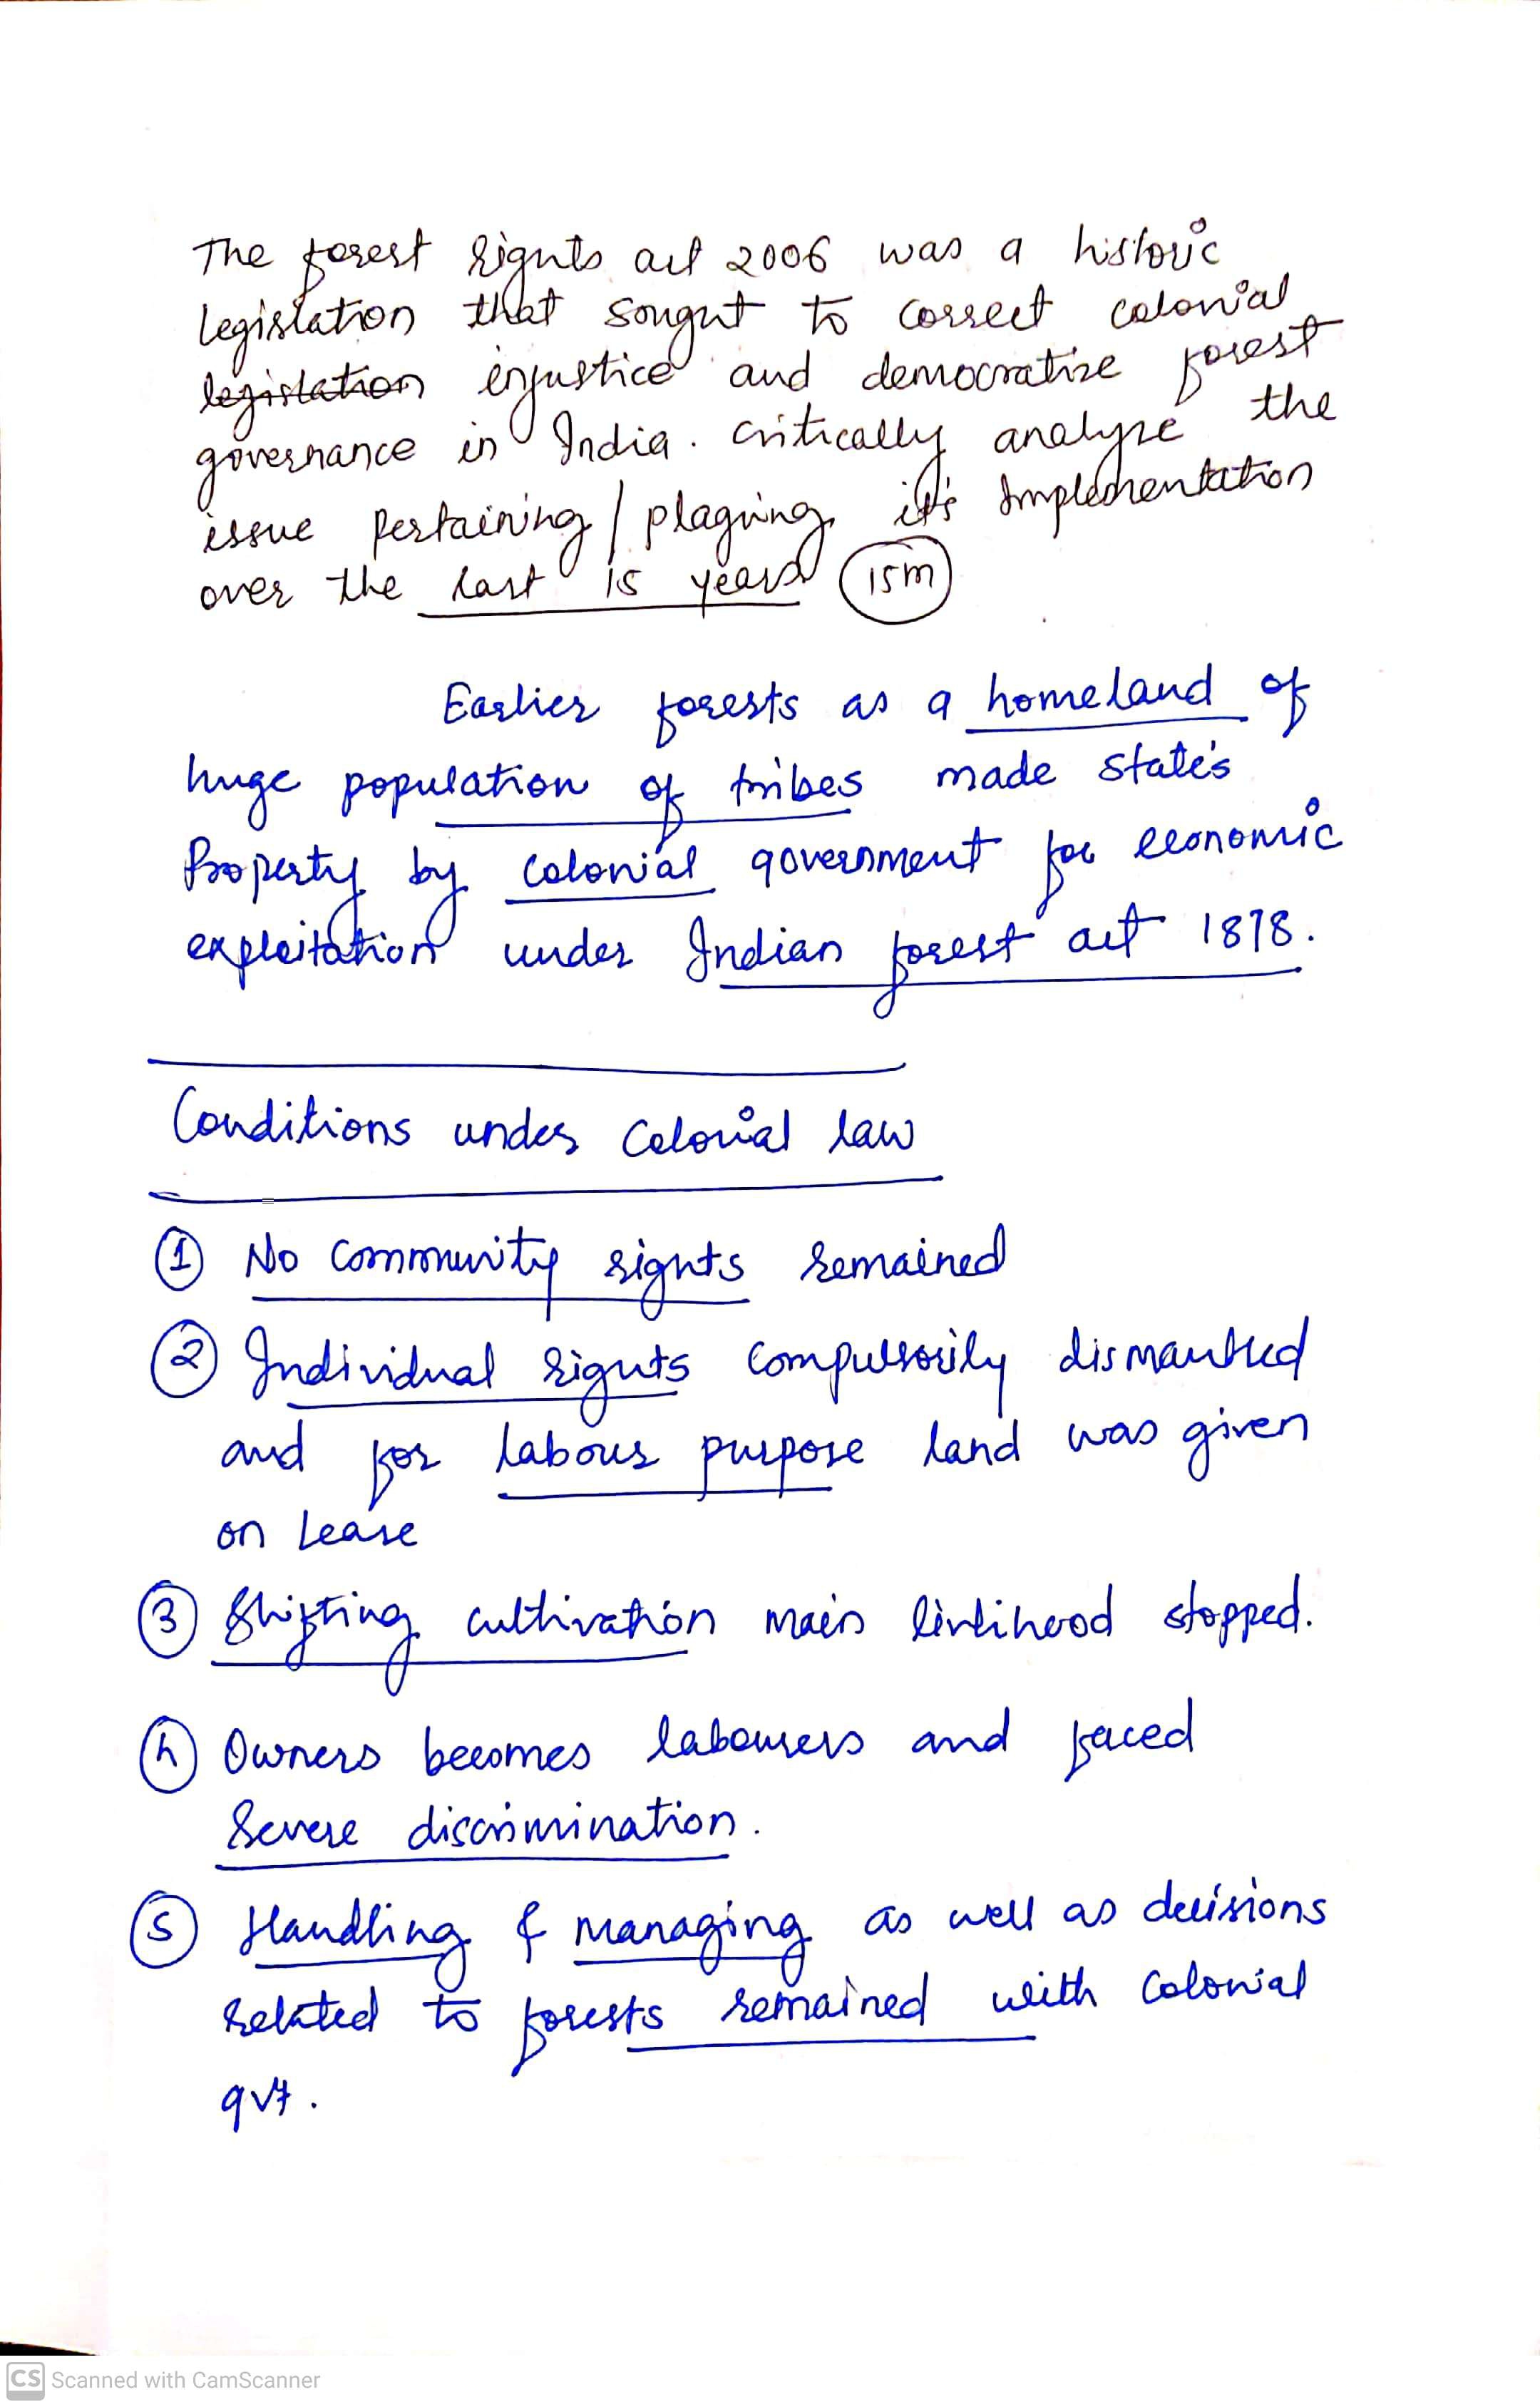 The forest Rights act 2006 was a historic
legislation that sought to correct colonial
legislation injustice and democratize forest
governance in India. critically analyze the
issue pertaining / plaguing it's Implementation
over the last 15 years 15m
Earlier forests as a homeland of
huge population of tribes made state's
Property by colonial government for economic
exploitation under Indian forest act 1878.
Conditions under Colonial law
① No Community rights remained
② Individual rights compulsorily dismantled
and for labour purpose land was given
on lease
③ Shifting cultivation main livlihood stopped.
④ Owners becomes labourers and faced
Severe discrimination.
⑤ Handling & managing as well as decisions
related to forests remained with Colonial
gvt.
CS Scanned with CamScanner